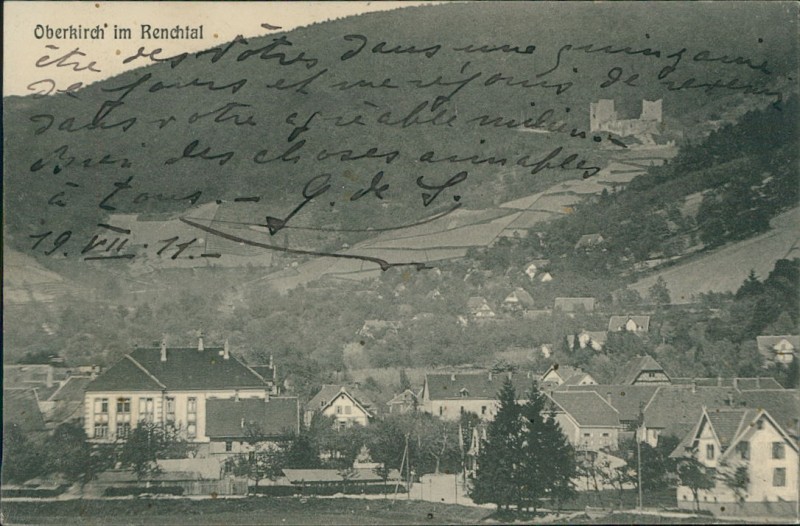 Oberkirch im Renchtal
être des Vôtres dans une quinzaine
de jours et me réjouis de revenir
dans votre agréable milieu.—
Bien des choses aimables
à tous.— G. de S.
19. VII. 11.—